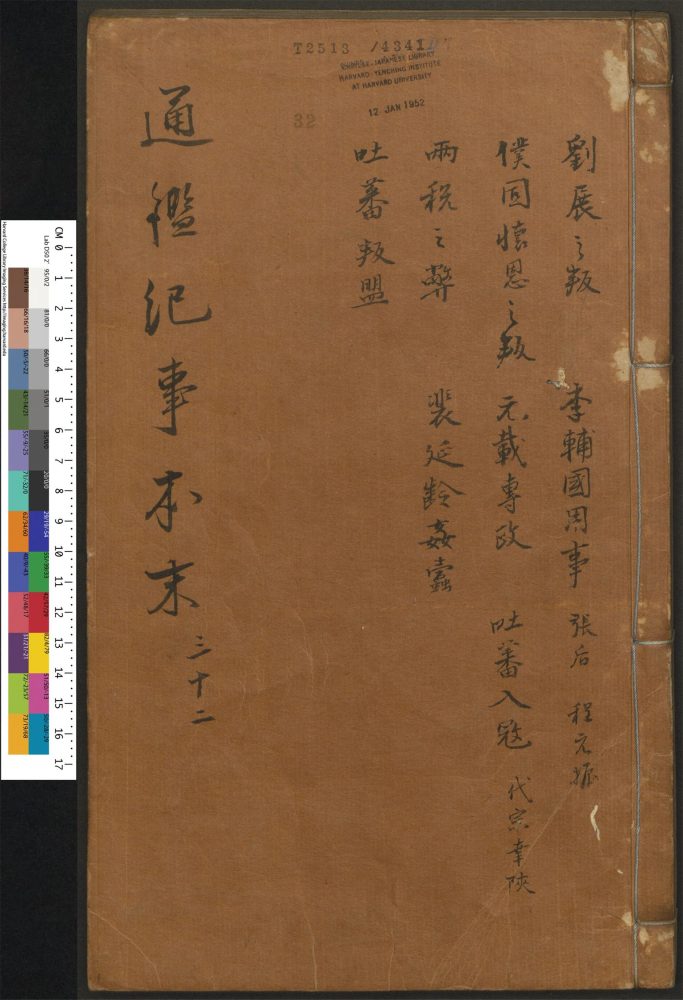 T2513 /4341
CHINESE-JAPANESE LIBRARY
HARVARD-YENCHING INSTITUTE
AT HARVARD UNIVERSITY
12 JAN 1952
32
劉展之叛 李輔國用事 張后 程元振
僕固懷恩之叛 元載專政 吐蕃入寇 代宗幸陝
兩稅之弊 裴延齡姦蠹
吐蕃叛盟
通鑑紀事本末 三十二
CM 0 1 2 3 4 5 6 7 8 9 10 11 12 13 14 15 16 17
Harvard College Library Imaging Services